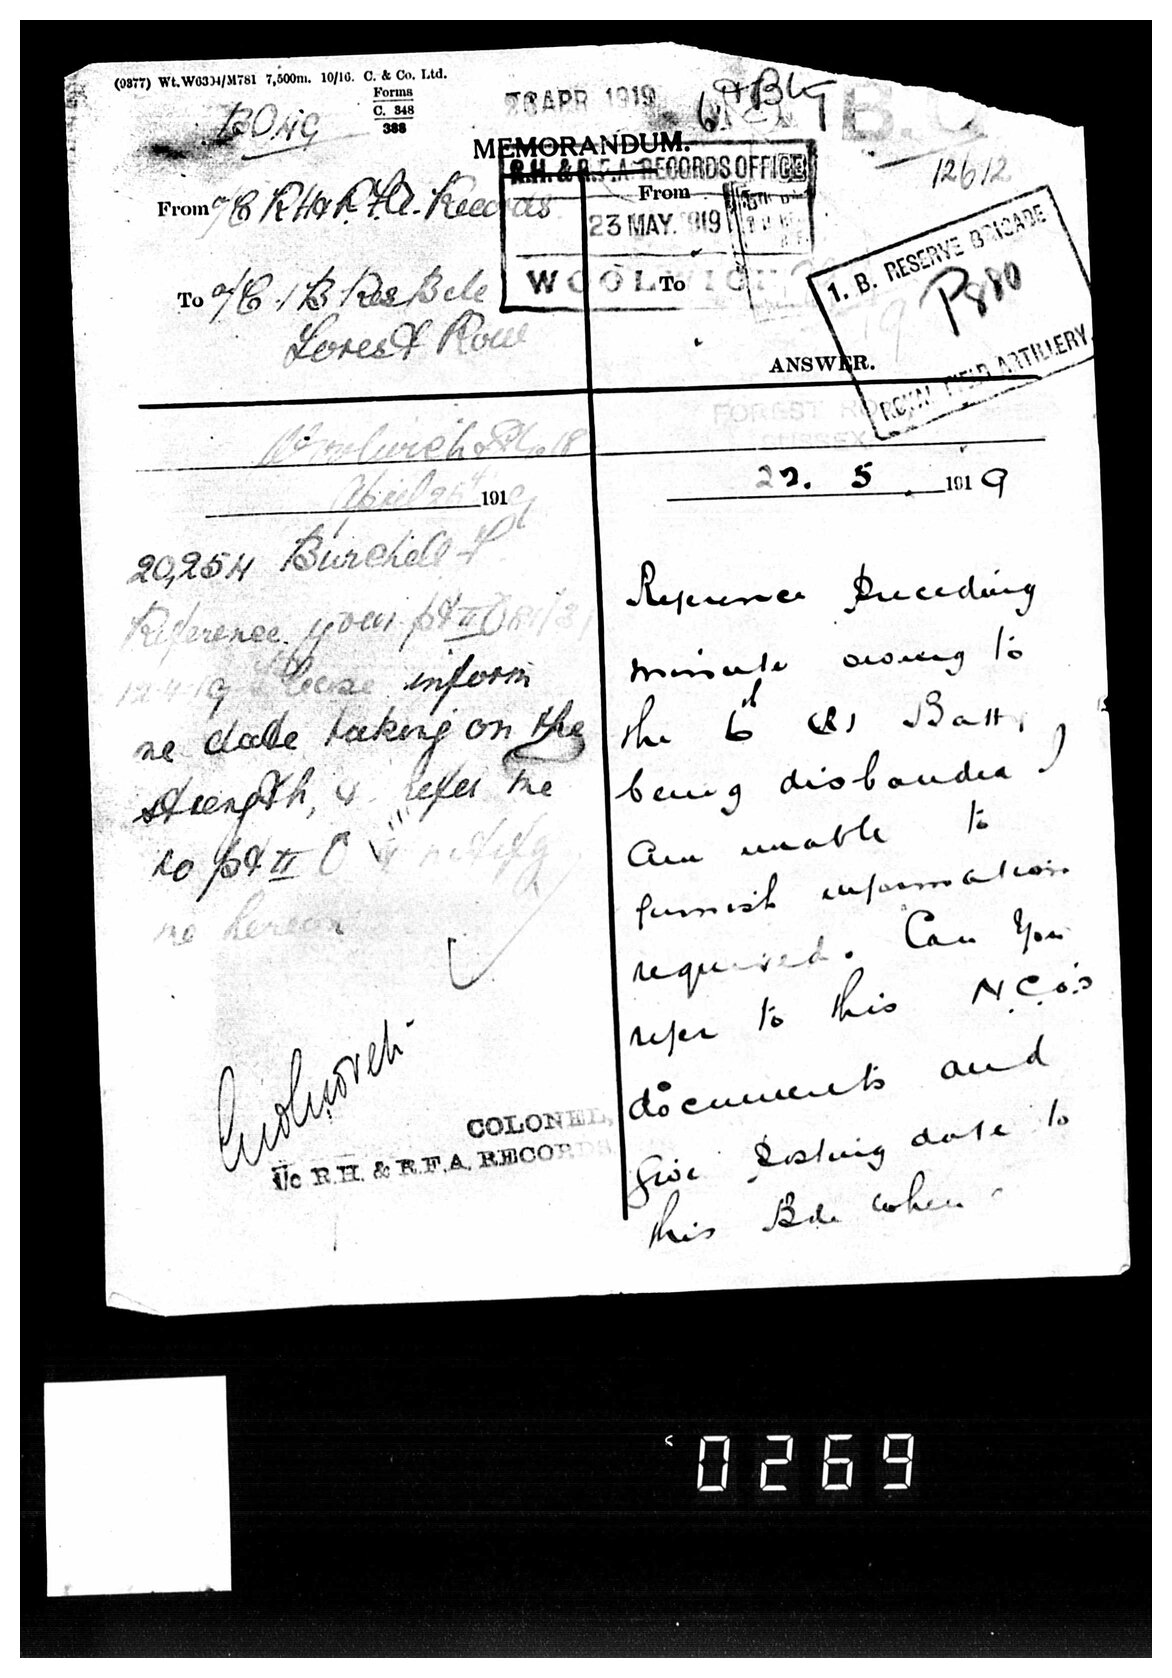 (9377) Wt. W6304/M781 7,500m. 10/16. C. & Co. Ltd.
Forms
C. 348
388
26 APR 1919
MEMORANDUM.
12612
R.H. & R.F.A. RECORDS OFFICE
23 MAY. 1919
WOOLWICH
From o/c R.H. & R.F.A. Records
From
To o/c 1B Res Bde
Forest Row
To
1. B. RESERVE BRIGADE
ROYAL FIELD ARTILLERY
ANSWER.
FOREST ROW
SUSSEX
Woolwich S.E. 18
April 26th 1919
22. 5. 1919
20,254 Burchell
Reference your pt II O
12.4.19 please inform
me date taking on the
strength, & refer me
to pt II O
me hereon
COLONEL,
I/c R.H. & R.F.A. RECORDS
Reference preceding
minute owing to
the 6th Batt,
being disbanded I
am unable to
furnish information
required. Can you
refer to this N.C.O's
documents and
give posting date to
this Bde when
0269